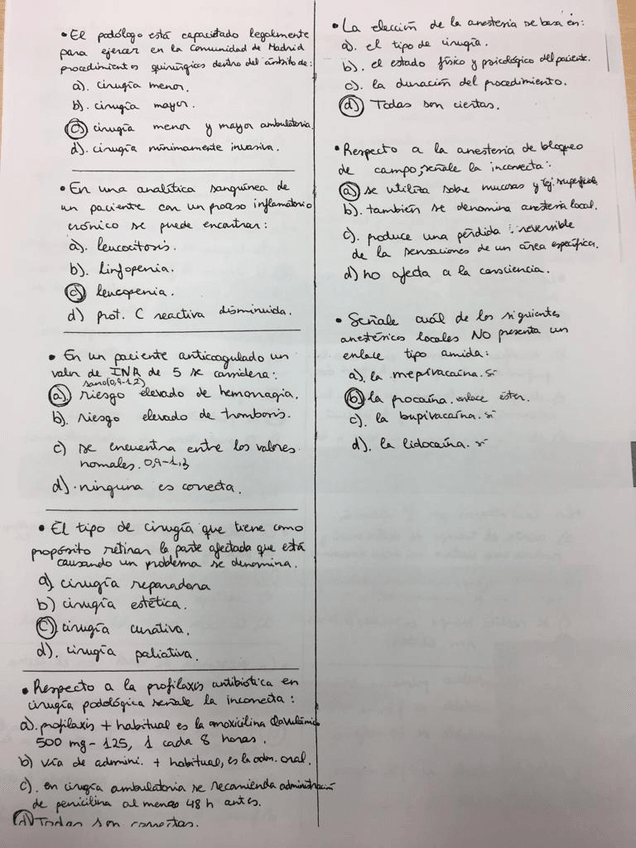 • El podólogo está capacitado legalmente
para ejercer en la Comunidad de Madrid
procedimientos quirúrgicos dentro del ámbito de:
a). cirugía menor.
b). cirugía mayor.
c) cirugía menor y mayor ambulatoria.
d). cirugía mínimamente invasiva.
• En una analítica sanguínea de
un paciente con un proceso inflamatorio
crónico se puede encontrar:
a). leucocitosis.
b). linfopenia.
c) leucopenia.
d) prot. C reactiva disminuida.
• En un paciente anticoagulado un
valor de INR de 5 se considera:
sano (0,9-1,2)
a). riesgo elevado de hemorragia.
b). riesgo elevado de trombosis.
c) se encuentra entre los valores
normales. 0,9-1,3
d). ninguna es correcta.
• El tipo de cirugía que tiene como
propósito retirar la parte afectada que está
causando un problema se denomina.
a) cirugía reparadora
b) cirugía estética.
c) cirugía curativa.
d). cirugía paliativa.
• Respecto a la profilaxis antibiótica en
cirugía podológica señale la incorrecta:
a). profilaxis + habitual es la amoxicilina clavulámico
500 mg - 125, 1 cada 8 horas.
b) vía de admini. + habitual, es la adm. oral.
c). en cirugía ambulatoria se recomienda administración
de penicilina al menos 48 h antes.
d) Todas son correctas.
• La elección de la anestesia se basa en:
a). el tipo de cirugía.
b). el estado físico y psicológico del paciente.
c). la duración del procedimiento.
d) Todas son ciertas.
• Respecto a la anestesia de bloqueo
de campo, señale la incorrecta:
a) se utiliza sobre mucosas y tej. superficiales
b). también se denomina anestesia local.
c). produce una pérdida reversible
de la sensaciones de un área específica.
d) no afecta a la consciencia.
• Señale cuál de los siguientes
anestésicos locales NO presenta un
enlace tipo amida:
a). la mepivacaína. sí
b) la procaína. enlace éster.
c). la bupivacaína. sí
d). la lidocaína. sí